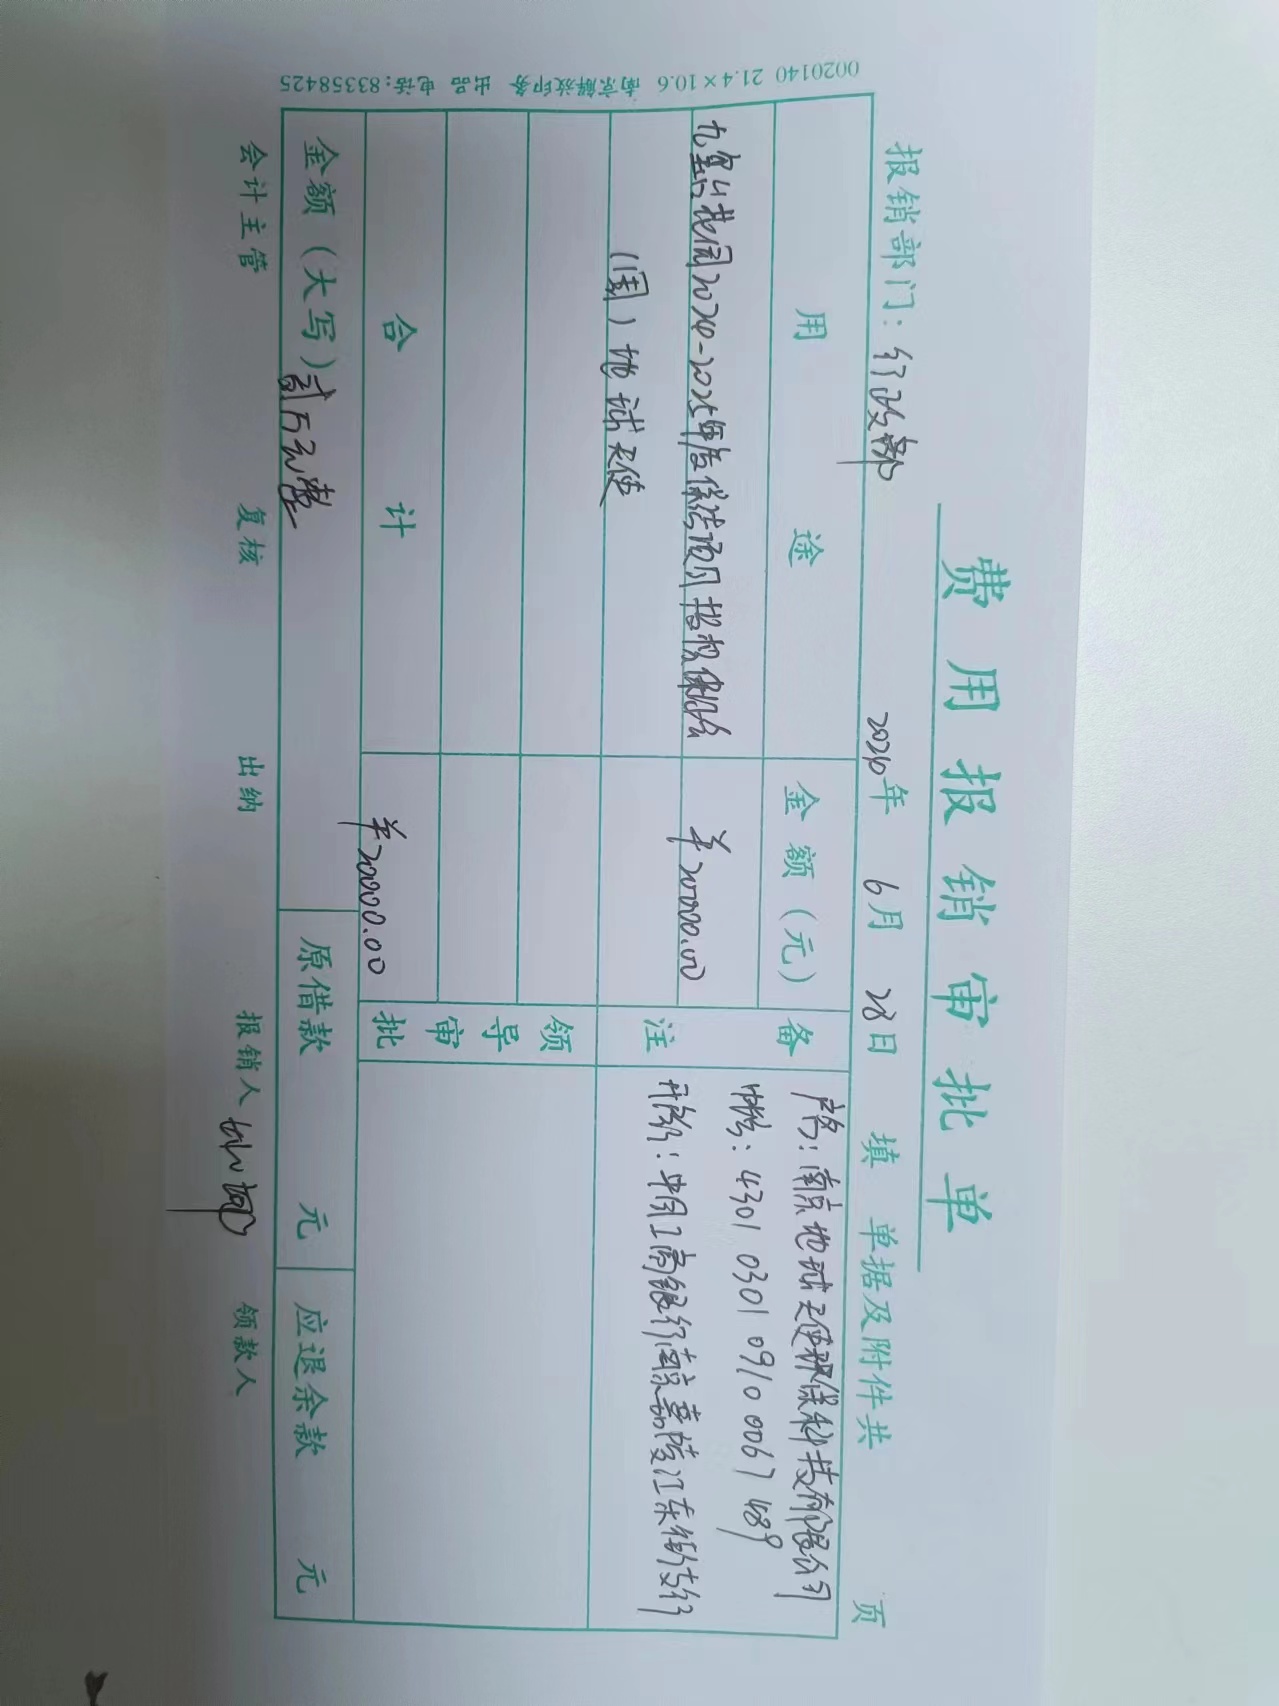 费用报销审批单
报销部门：行政部 2024年 6月 28日 填 单据及附件共 页
用 途 金 额（元） 备注
九龟山花园2024-2025年度保洁项目投标保证金 ￥20000.00
（周）地球天使
户名：南京地球天使环保科技有限公司
帐号：4301 0301 0910 0067 489
开户行：中国工商银行南京嘉陵江东街支行
领导审批
合 计 ￥20000.00
金额（大写）贰万元整 原借款 元 应退余款 元
会计主管 复核 出纳 报销人 领款人
0020140 21.4×10.6 南京解放印务 出品 电话：83358425